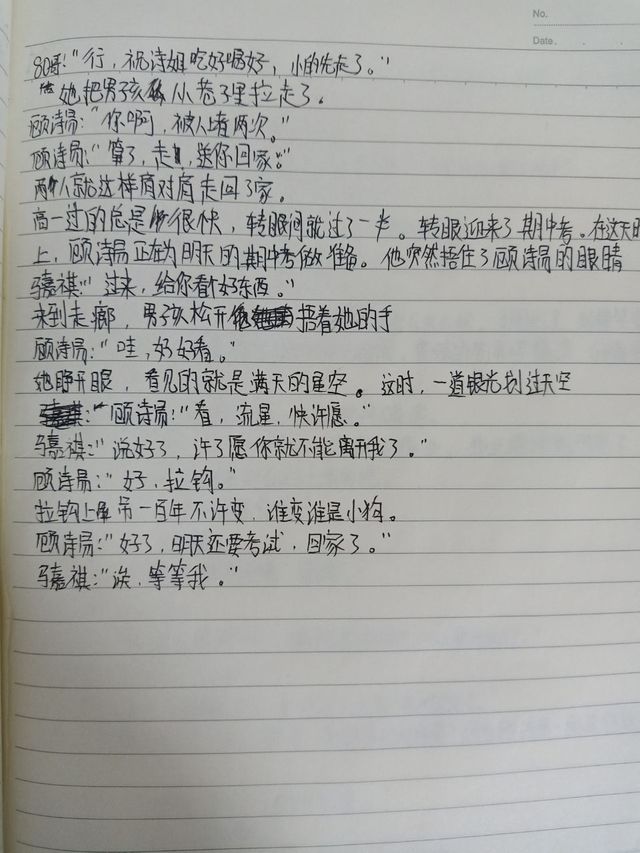 No.
Date.
80哥:“行，祝诗姐吃好喝好，小的先走了。”
她把男孩从小巷子里拉走了。
顾诗易:“你啊，被人堵两次。”
顾诗易:“算了，走，送你回家。”
两个人就这样肩对肩走回了家。
高一过的总是很快，转眼间就过了一半。转眼迎来了期中考。在这天的
上，顾诗易正在为明天的期中考做准备。他突然捂住了顾诗易的眼睛
马嘉祺:“过来，给你看个好东西。”
来到走廊，男孩松开捂着她的手
顾诗易:“哇，好好看。”
她睁开眼，看见的就是满天的星空。这时，一道银光划过天空
顾诗易:“看，流星，快许愿。”
马嘉祺:“说好了，许了愿你就不能离开我了。”
顾诗易:“好，拉钩。”
拉钩上吊一百年不许变，谁变谁是小狗。
顾诗易:“好了，明天还要考试，回家了。”
马嘉祺:“诶，等等我。”